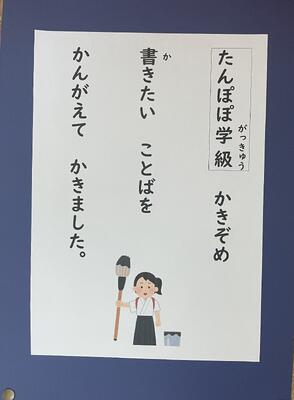 たんぽぽ学級 かきぞめ
書きたい ことばを
かんがえて かきました。